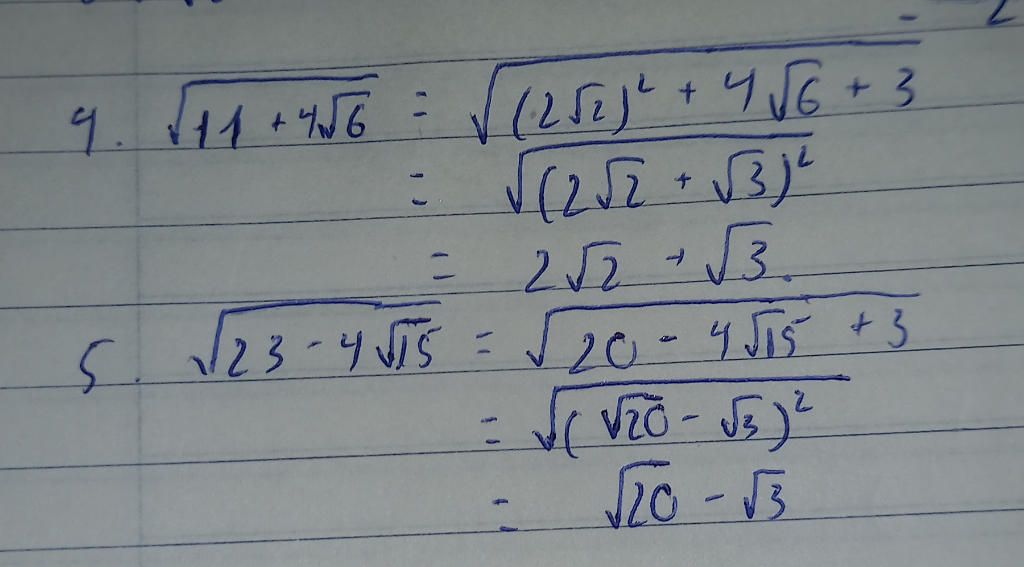 4. √(11 + 4√6) = √((2√2)² + 4√6 + 3)
= √((2√2 + √3)²)
= 2√2 + √3.
5. √(23 - 4√15) = √(20 - 4√15 + 3)
= √((√20 - √3)²)
= √20 - √3